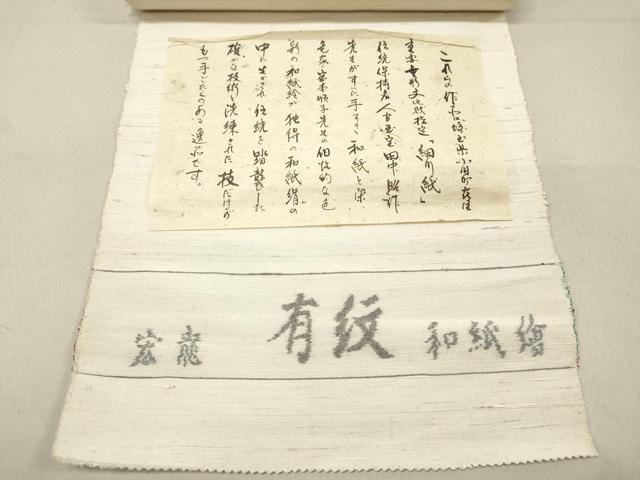 これらの作品は埼玉県小川町在住
重要無形文化財指定「細川紙」
伝統保持者人間国宝田中昭作
先生がすいた手すき和紙と染
色家宗本順子先生の個性的な色
彩の和紙絵が独得の和紙絹の
中に生かされ伝統を踏襲した
確かな技術と洗練された技だけが
もつ手いたくのある逸品です。
宏龍 有紋 和紙繪